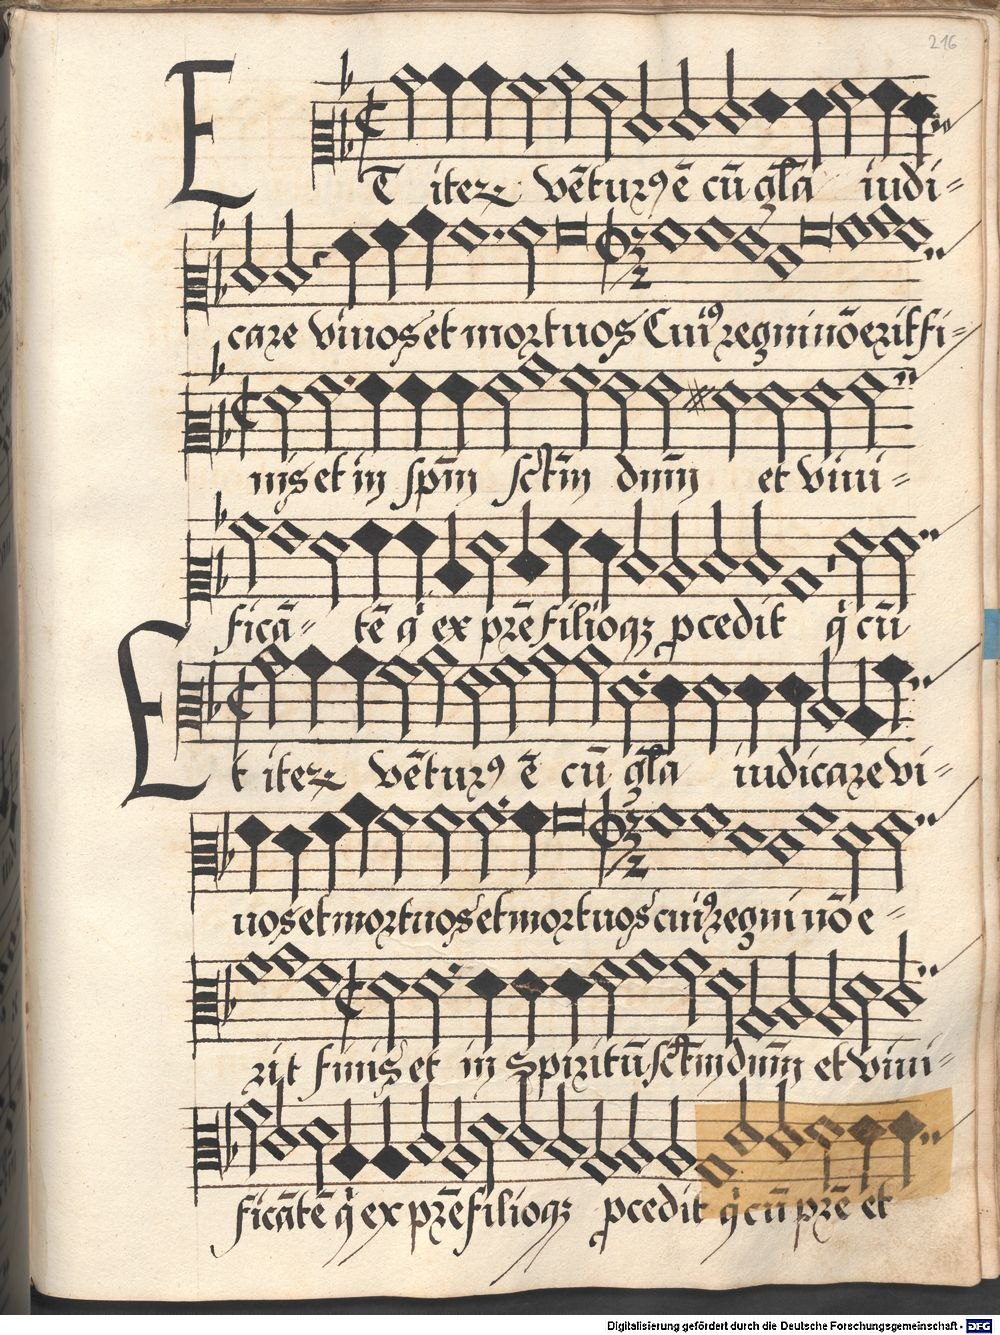 216
ET iteꝝ vētur⁹ ē cū gl̄a iudi=
care vivos et mortuos Cui⁹ regni nō erit fi=
nis et in sp̄m sct̄m dn̄m et vivi=
ficā= tē q̇ ex pr̄e filioqꝫ pcedit q̇ cū
Et iteꝝ vētur⁹ ē cū gl̄a iudicare vi=
vos et mortuos et mortuos cui⁹ regni nō e=
rit finis et in spiritū sct̄m dn̄m et vivi=
ficātē q̇ ex pr̄e filioqꝫ pcedit q̇ cū pr̄e et
Digitalisierung gefördert durch die Deutsche Forschungsgemeinschaft - DFG